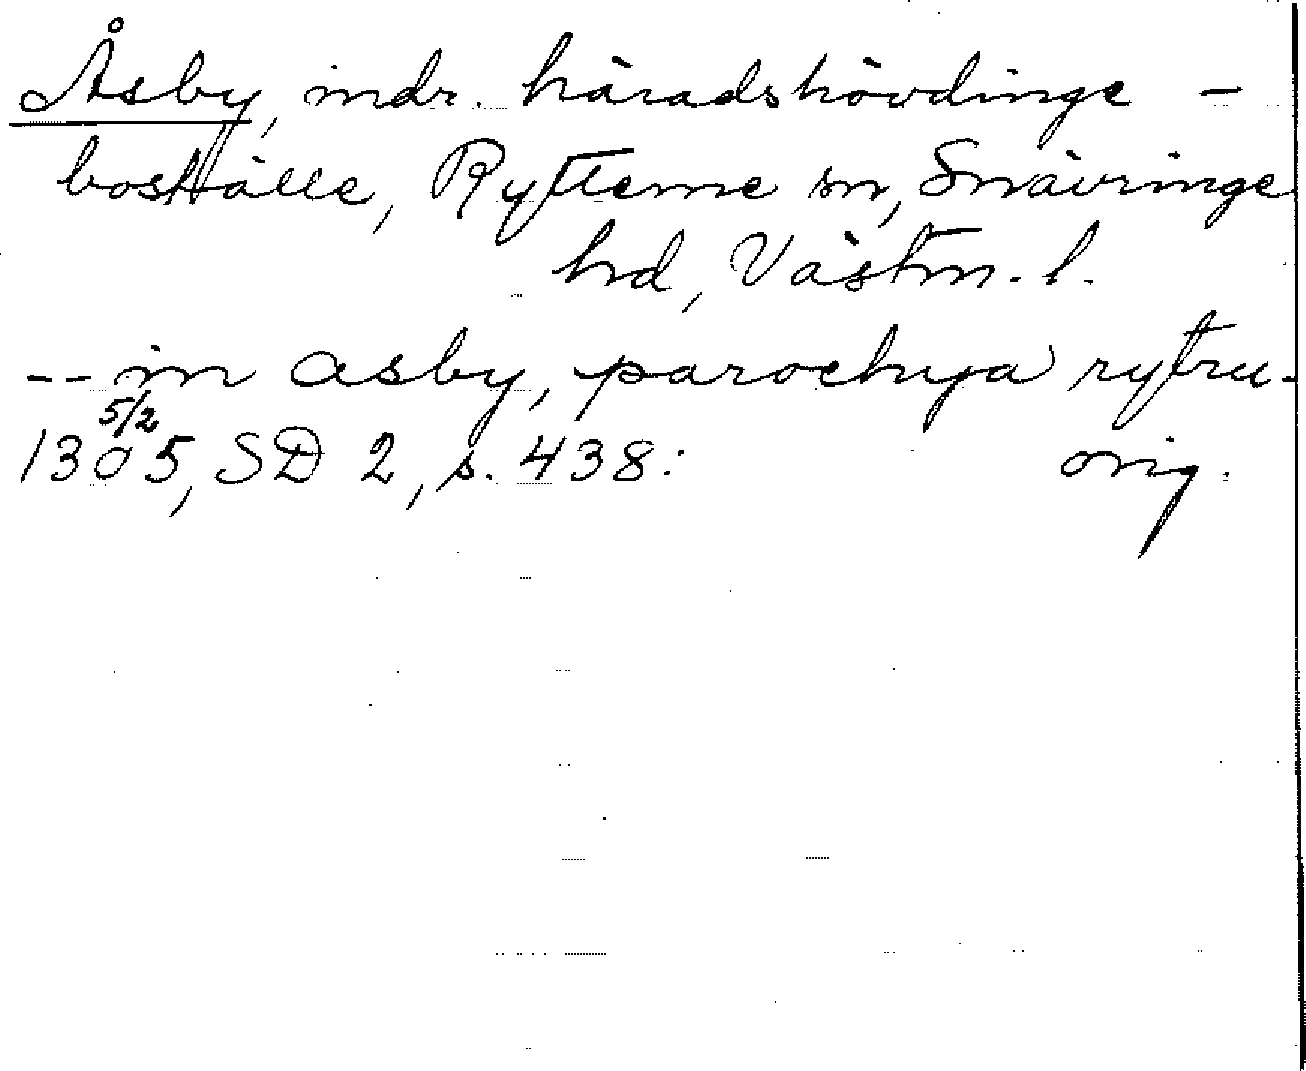 Åsby, indr. häradshövdinge-
boställe, Rytterne sn, Snävringe
hd, Västm. l.
-- in asby, parochya rytru-
5/2
1305, SD 2, s. 438: orig.